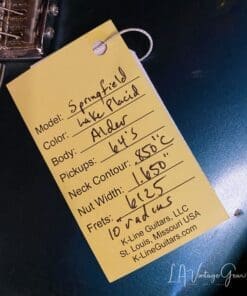 Model: Springfield
Color: Lake Placid
Body: Alder
Pickups: 64's
Neck Contour: .850"C
Nut Width: 1.650"
Frets: 6125
10 radius
K-Line Guitars, LLC
St. Louis, Missouri USA
K-LineGuitars.com
LA Vintage Gear